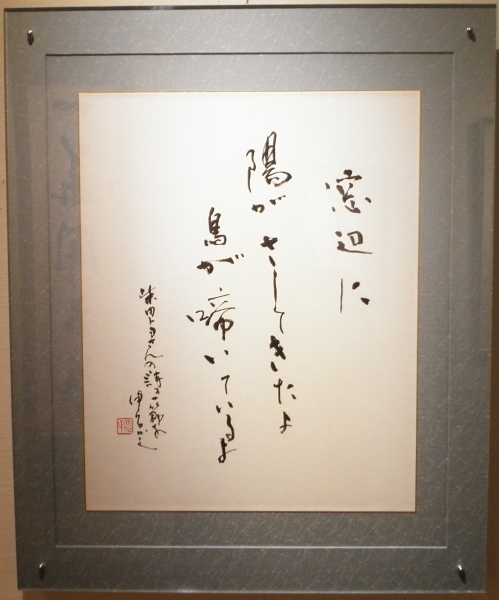 窓辺に
陽がさしてきたよ
鳥が啼いているよ
柴田トヨさんの詩の一節を